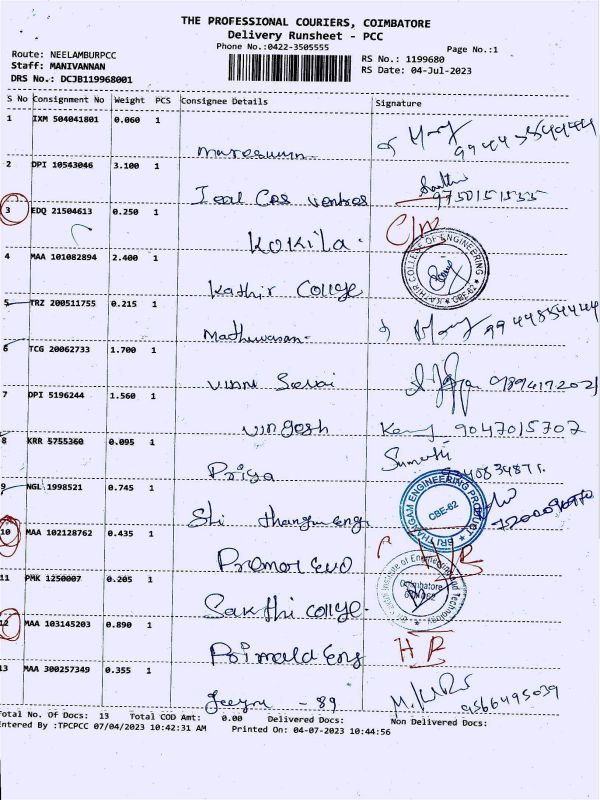 THE PROFESSIONAL COURIERS, COIMBATORE
Delivery Runsheet - PCC
Phone No.:0422-3505555
Page No.:1
Route: NEELAMBURPCC
Staff: MANIVANNAN
DRS No.: DCJB119968001
RS No.: 1199680
RS Date: 04-Jul-2023
S No Consignment No Weight PCS Consignee Details Signature
1 IXM 504041801 0.060 1
2 DPI 10543046 3.100 1
9750151535
3 EDQ 21504613 0.250 1
KOKILA.
4 MAA 101082894 2.400 1
KATHIR COLLEGE OF ENGINEERING CBE-62
Kathir College
5 TRZ 200511755 0.215 1
9944854444
6 TCG 20062733 1.700 1
7 DPI 5196244 1.560 1
9047015707
8 KRR 5755360 0.095 1
Sumathi
Priya
9 NGL 1998521 0.745 1
SRI THANGAM ENGINEERING PRODUCT CBE-62
Sri thangam eng
10 MAA 102128762 0.435 1
11 PMK 1250007 0.205 1
Institute of Engineering and Technology
Coimbatore
Sakthi college.
12 MAA 103145203 0.890 1
13 MAA 300257349 0.355 1
- 89
9566495039
Total No. Of Docs: 13 Total COD Amt: 0.00 Delivered Docs: Non Delivered Docs:
ntered By :TPCPCC 07/04/2023 10:42:31 AM Printed On: 04-07-2023 10:44:56